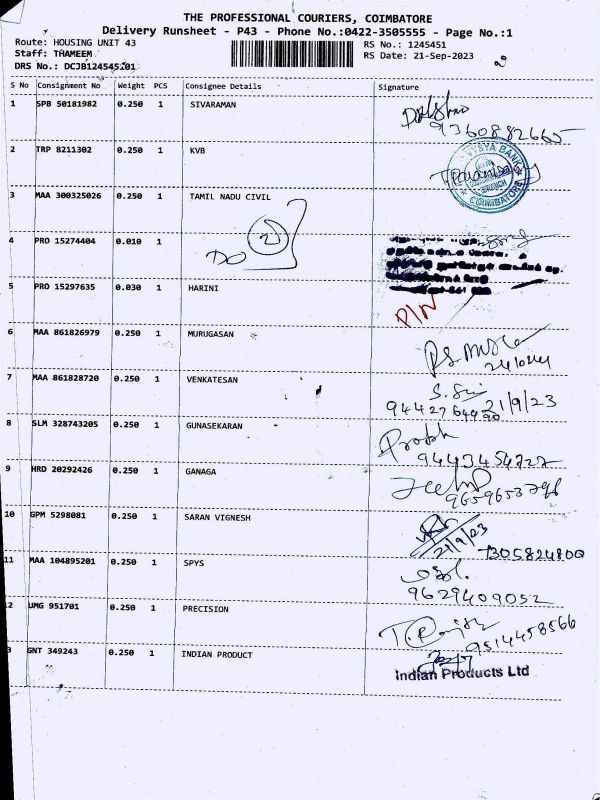 THE PROFESSIONAL COURIERS, COIMBATORE
Delivery Runsheet - P43 - Phone No.:0422-3505555 - Page No.:1
Route: HOUSING UNIT 43 RS No.: 1245451
Staff: THAMEEM RS Date: 21-Sep-2023
DRS No.: DCJB124545101 2
S No Consignment No Weight PCS Consignee Details Signature
1 SPB 50181982 0.250 1 SIVARAMAN
9360882665
2 TRP 8211302 0.250 1 KVB
VYSYA BANK
BRANCH
COIMBATORE
3 MAA 300325026 0.250 1 TAMIL NADU CIVIL
DO 2
4 PRO 15274404 0.010 1
5 PRO 15297635 0.030 1 HARINI
P/N
6 MAA 861826979 0.250 1 MURUGASAN
7 MAA 861828720 0.250 1 VENKATESAN
21/9/23
8 SLM 328743205 0.250 1 GUNASEKARAN
9443454727
9 HRD 20292426 0.250 1 GANAGA
9659653796
10 GPM 5298081 0.250 1 SARAN VIGNESH
21/9/23 7305824800
11 MAA 104895201 0.250 1 SPYS
9629409052
2 UMG 951701 0.250 1 PRECISION
9514458566
3 GNT 349243 0.250 1 INDIAN PRODUCT
Indian Products Ltd